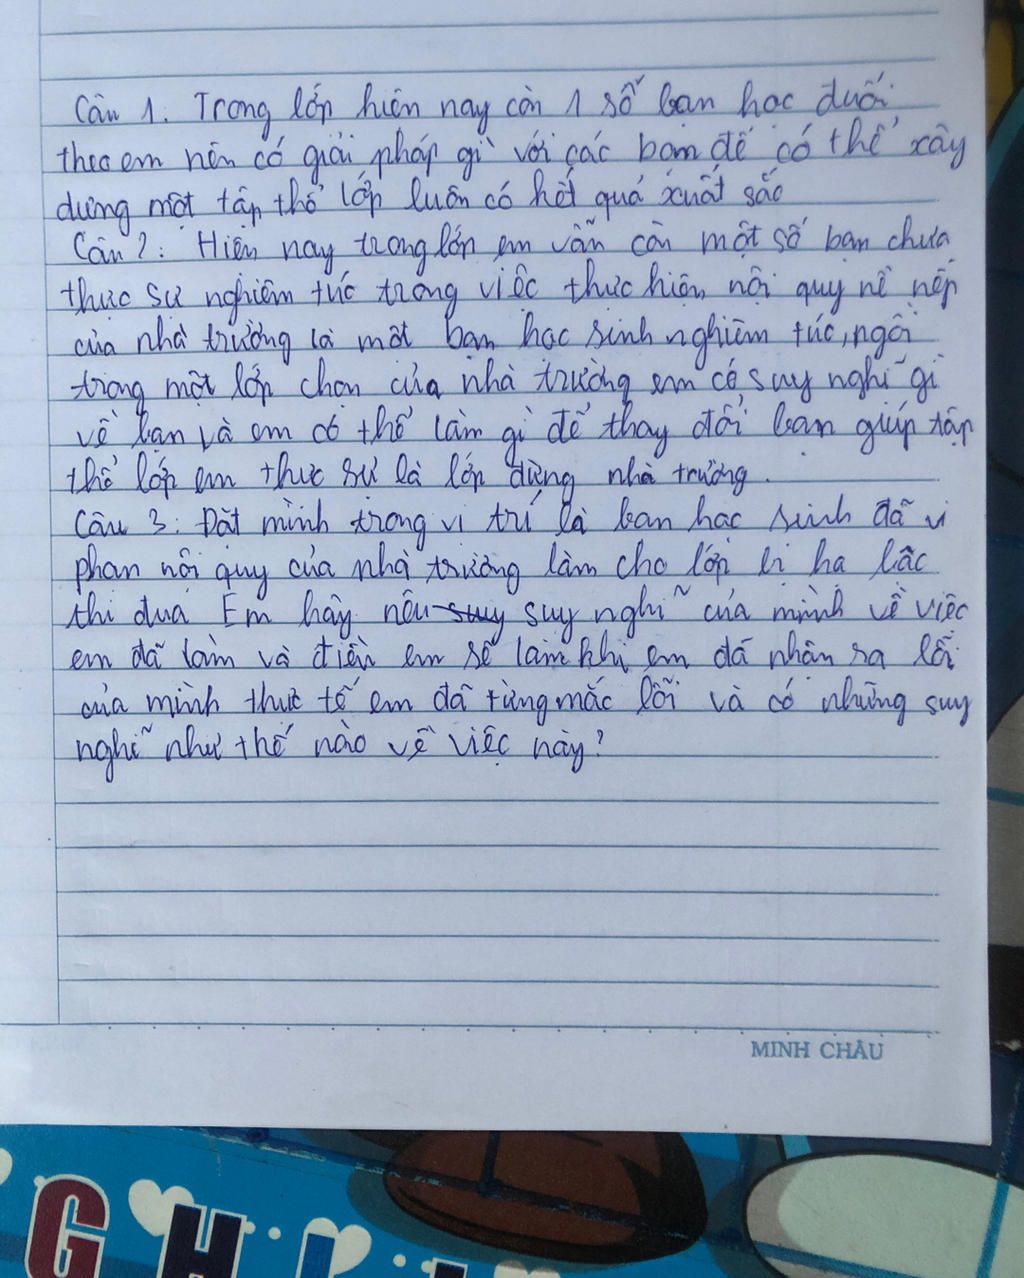 Câu 1. Trong lớp hiện nay còn 1 số bạn học đuối
theo em nên có giải pháp gì với các bạn để có thể xây
dựng một tập thể lớp luôn có kết quả xuất sắc
Câu 2: Hiện nay trong lớp em vẫn còn một số bạn chưa
thực sự nghiêm túc trong việc thực hiện nội quy nề nếp
của nhà trường là một bạn học sinh nghiêm túc, ngồi
trong một lớp chọn của nhà trường em có suy nghĩ gì
về bạn và em có thể làm gì để thay đổi bạn giúp tập
thể lớp em thực sự là lớp đừng nhà trường.
Câu 3: Đặt mình trong vị trí là bạn học sinh đã vi
phạm nội quy của nhà trường làm cho lớp bị hạ bậc
thi đua Em hãy nêu suy suy nghĩ của mình về việc
em đã làm và điền em sẽ làm khi em đã nhận ra lỗi
của mình thực tế em đã từng mắc lỗi và có những suy
nghĩ như thế nào về việc này?
MINH CHÂU
G H I